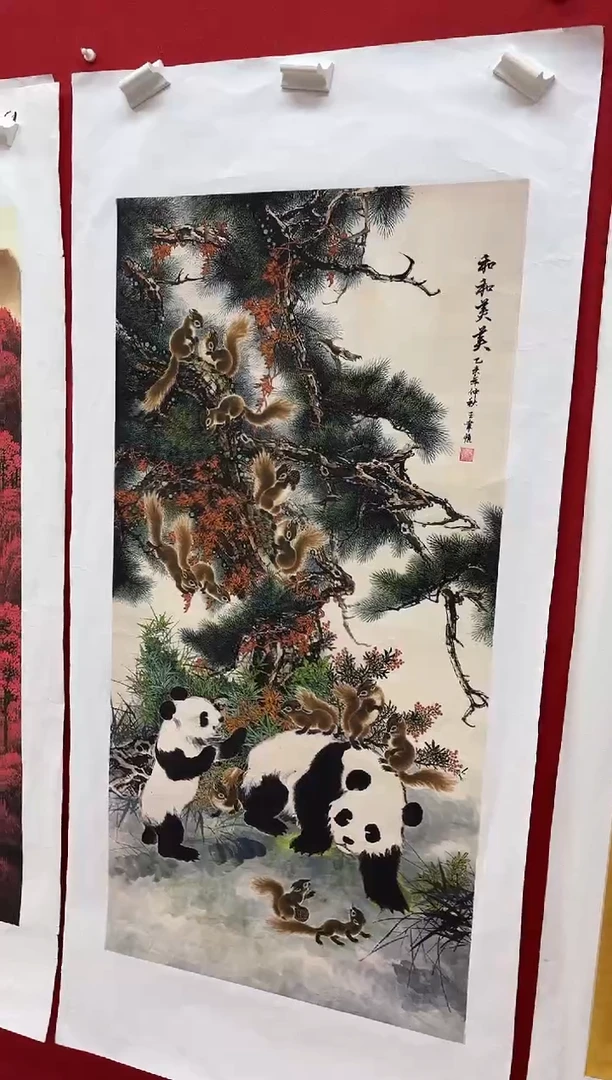 和和美美
乙未年仲秋